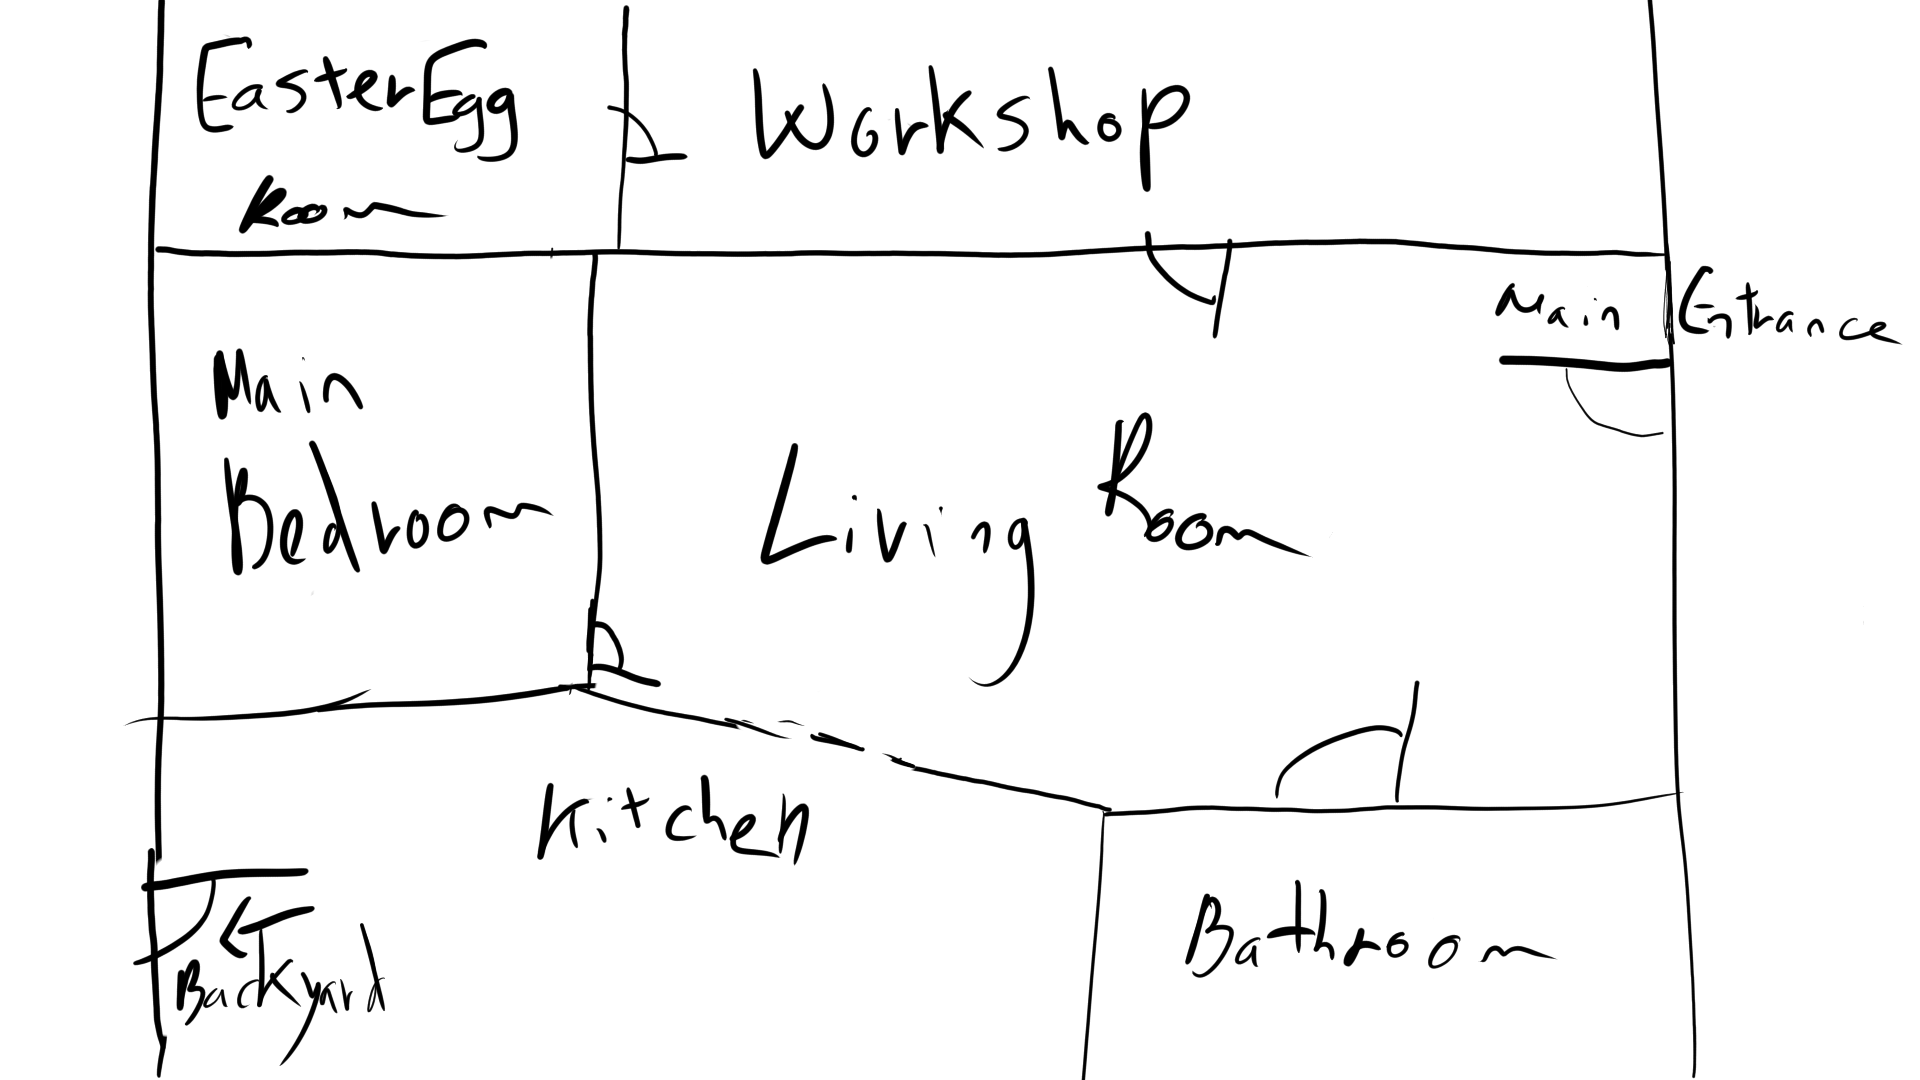 EasterEgg
Room
Workshop
Main Entrance
Main
Bedroom
Living Room
Kitchen
Backyard
Bathroom